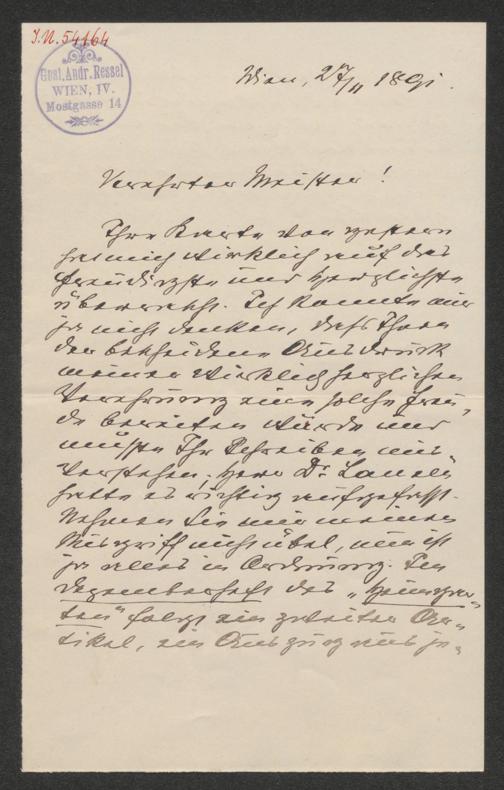 J.N. 54164
Gust. Andr. Ressel
WIEN, IV.
Mostgasse 14
Wien, 27/11 1891.
Verehrter Meister!
Ihre Karte von gestern
hat mich wirklich auf das
freudigste und herzlichste
überrascht. Ich konnte mir
ja nicht denken, dass Ihnen
der bescheidene Ausdruck
meiner wirklich herzlichen
Verehrung eine solche Freu-
de bereiten würde und
musste Ihr Schreiben mis-
verstehen; Herr Dr.
hatte es richtig aufgefasst.
Nehmen Sie mir meinen
Misgriff nicht übel, nun ist
ja alles in Ordnung. Im
Dezemberheft des „Heimgar-
ten" folgt ein zweiter Ar-
tikel, ein Auszug aus je-